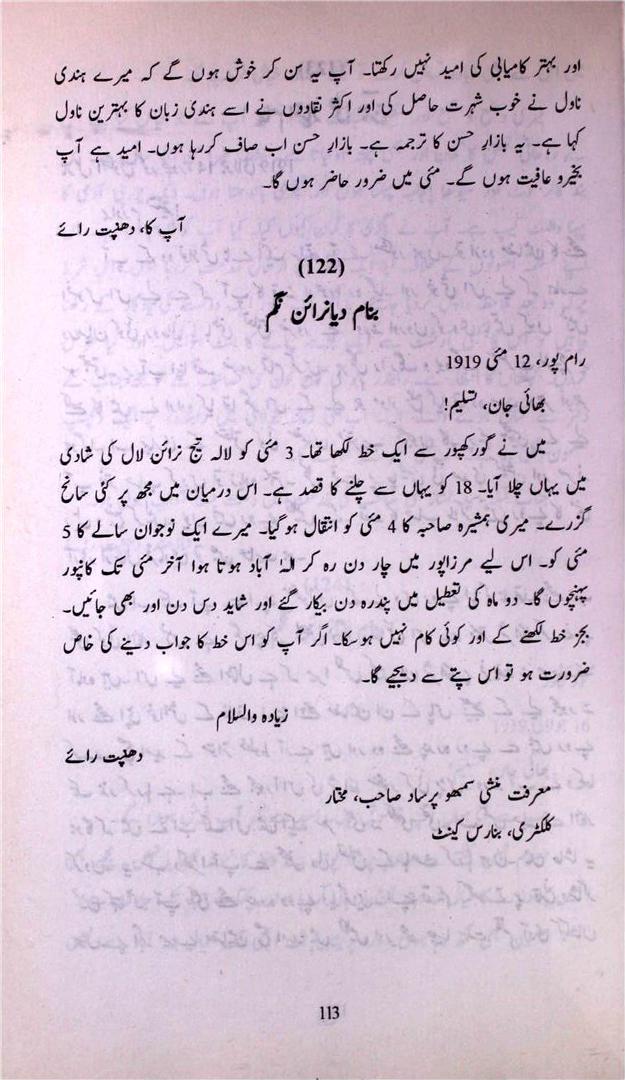 اور بہتر کامیابی کی امید نہیں رکھتا۔ آپ یہ سن کر خوش ہوں گے کہ میرے ہندی
ناول نے خوب شہرت حاصل کی اور اکثر نقادوں نے اسے ہندی زبان کا بہترین ناول
کہا ہے۔ یہ بازارِ حسن کا ترجمہ ہے۔ بازارِ حسن اب صاف کررہا ہوں۔ امید ہے آپ
بخیرو عافیت ہوں گے۔ مئی میں ضرور حاضر ہوں گا۔
آپ کا، دھنپت رائے
(122)
بنام دیانرائن نگم
رام پور، 12 مئی 1919
بھائی جان، تسلیم!
میں نے گورکھپور سے ایک خط لکھا تھا۔ 3 مئی کو لالہ تیج نرائن لال کی شادی
میں یہاں چلا آیا۔ 18 کو یہاں سے چلنے کا قصد ہے۔ اس درمیان میں مجھ پر کئی سانح
گزرے۔ میری ہمشیرہ صاحبہ کا 4 مئی کو انتقال ہوگیا۔ میرے ایک نوجوان سالے کا 5
مئی کو۔ اس لیے مرزاپور میں چار دن رہ کر الہٰ آباد ہوتا ہوا آخر مئی تک کانپور
پہنچوں گا۔ دو ماہ کی تعطیل میں پندرہ دن بیکار گئے اور شاید دس دن اور بھی جائیں۔
بجز خط لکھنے کے اور کوئی کام نہیں ہوسکا۔ اگر آپ کو اس خط کا جواب دینے کی خاص
ضرورت ہو تو اس پتے سے دیجیے گا۔
زیادہ والسلام
دھنپت رائے
معرفت منشی سمبھو پرساد صاحب، مختار
کلکٹری، بنارس کینٹ
113